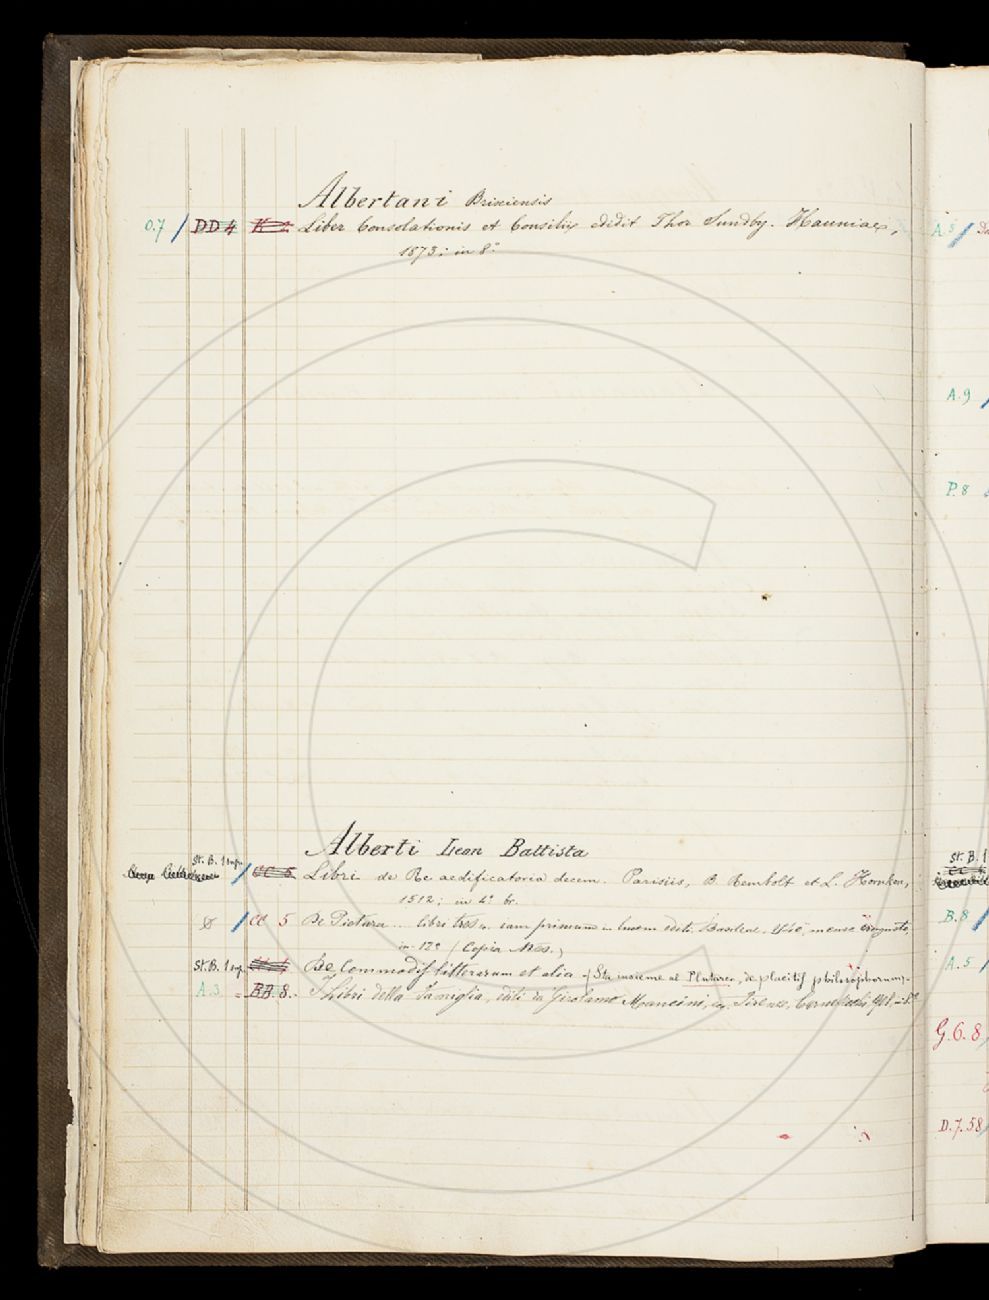 Albertani Brixiensis
O.7 / DD 4 Liber Consolationis et Consilii, edidit Thor Sundby. Hauniae,
1873; in 8°
A.5
A.9
P.8
Alberti Leon Battista
St. B. 1 sup.
/ CC 5 Libri de Re aedificatoria decem. Parisiis, B. Rembolt et L. Hornken,
1512; in 4° br.
Ø / CC 5 De Pictura libri tres iam primum in lucem editi. Basileae, 1540, mense augusto,
in 12° (Copia Mss.)
St. B. 1 sup. De Commodis litterarum et alia (Sta insieme al Plutarco, de placitis philosophorum).
A.3 = BB 8. I Libri della Famiglia, editi da Girolamo Mancini, Firenze, Carnesecchi, 1908, in 8°
St. B. 1
CC 4
B.8
A.5
G.6.8
D.7.58